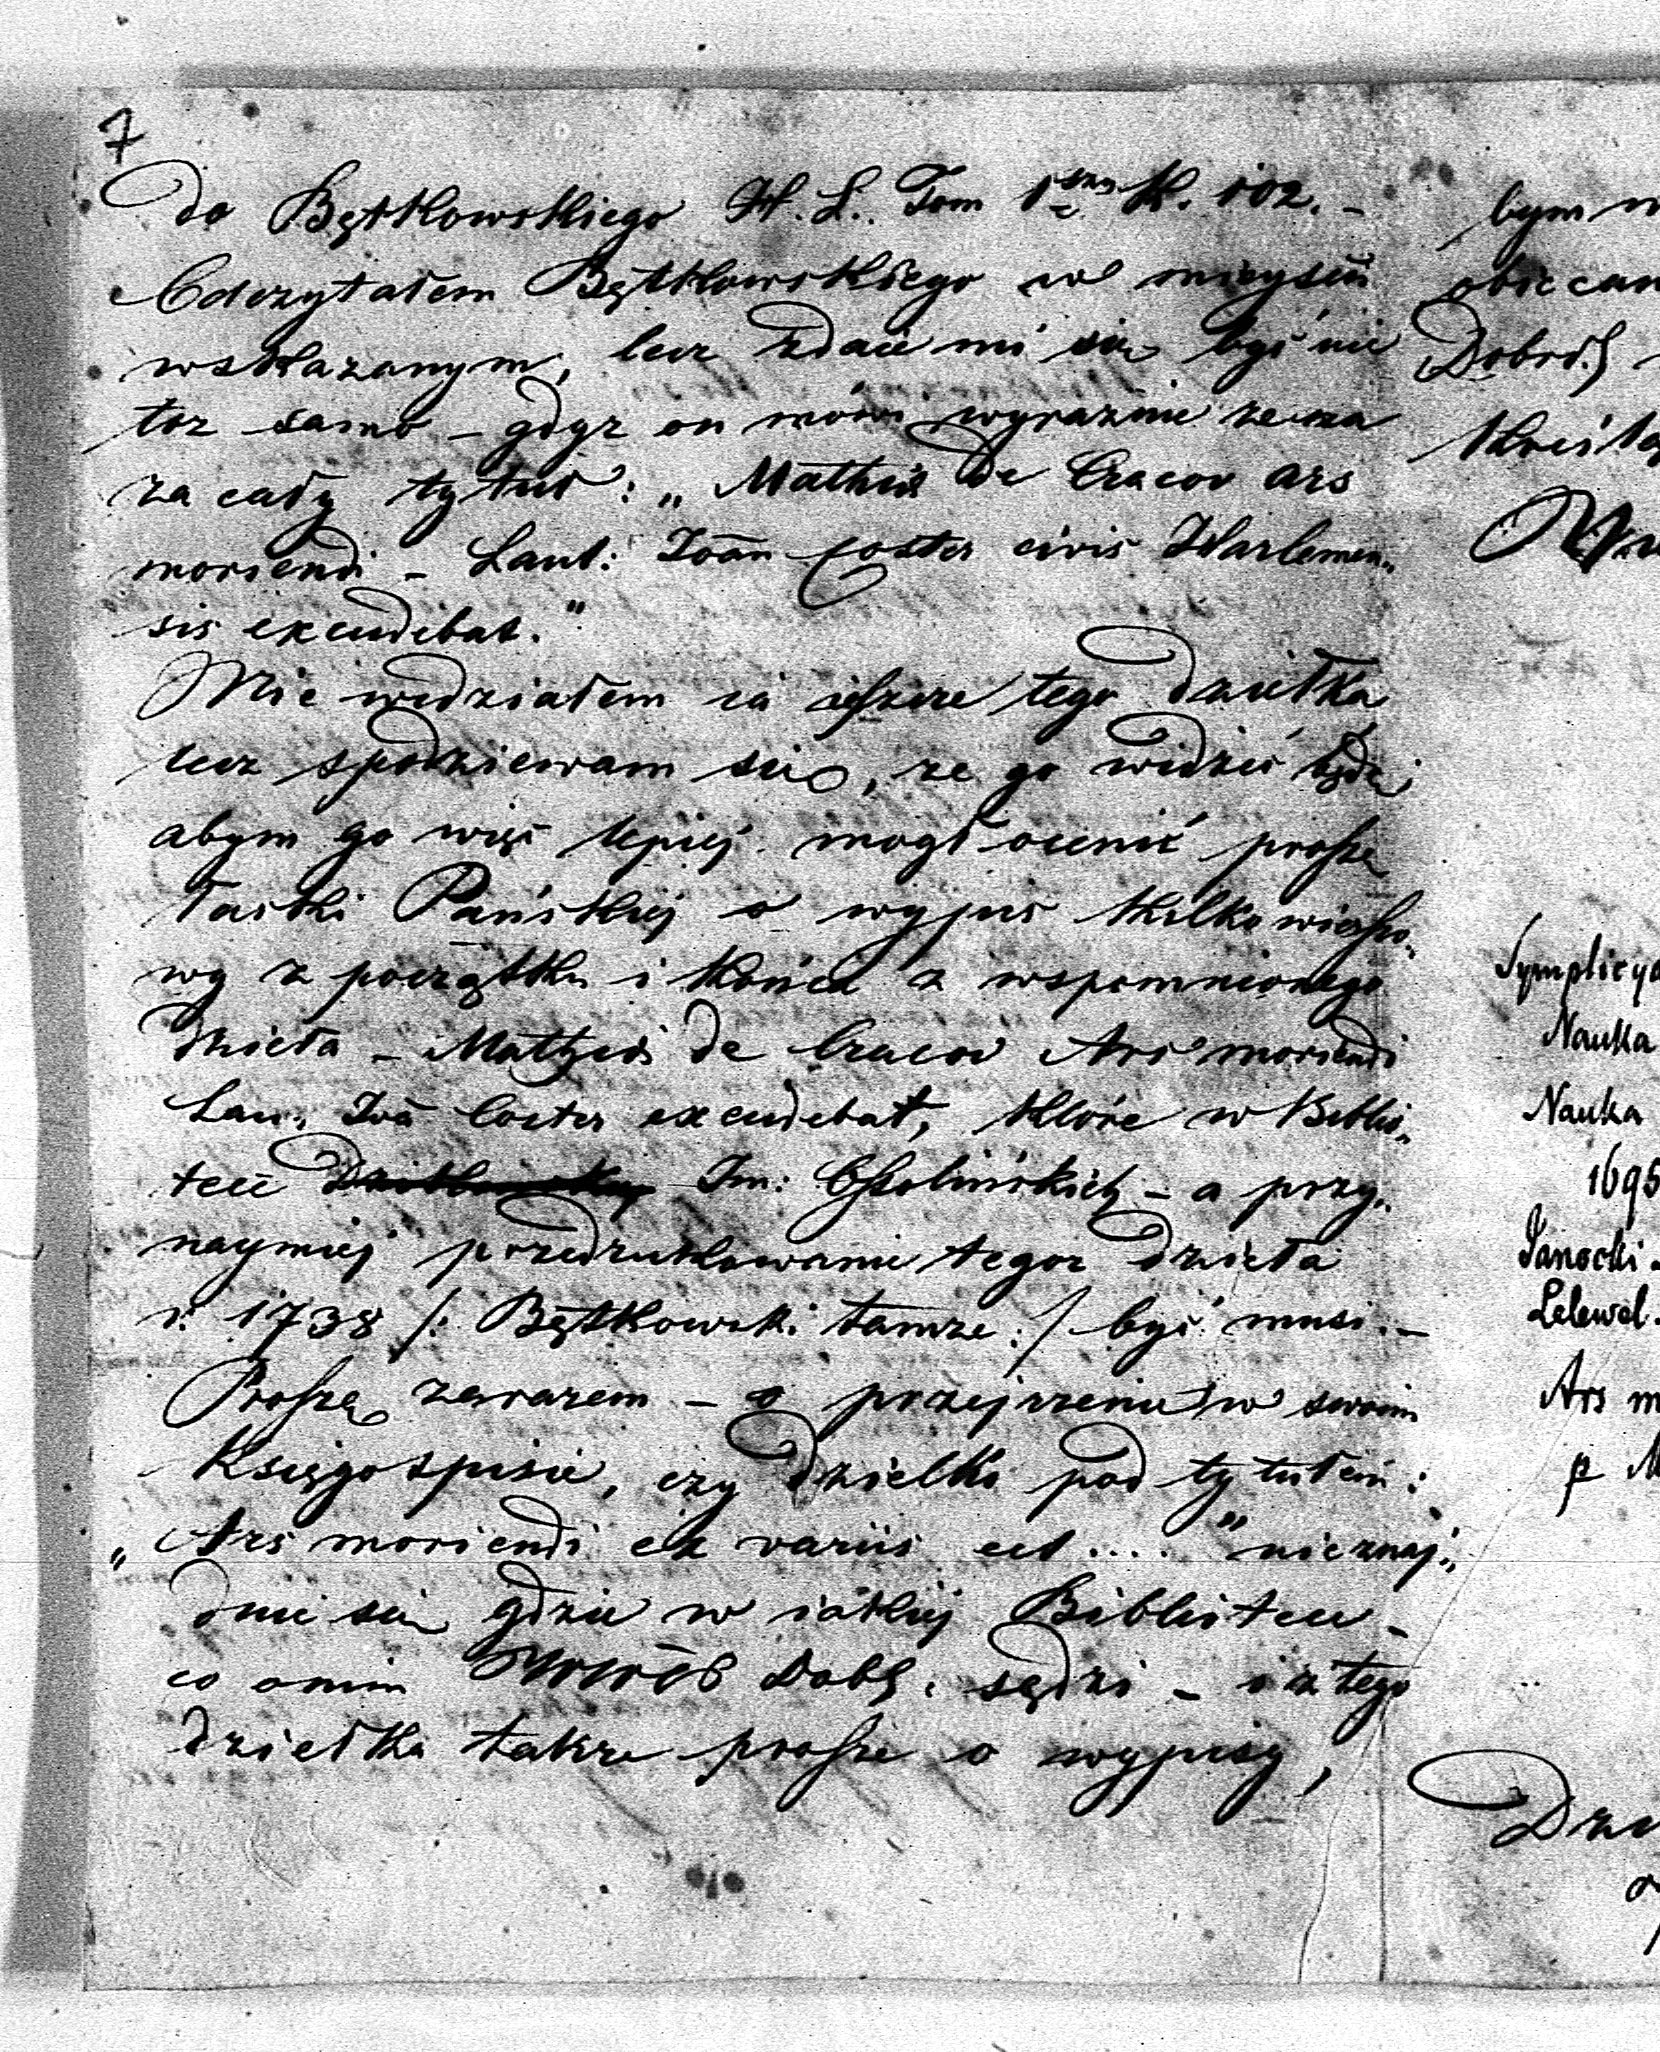 7
do Bętkowskiego H. L. Tom 1szy K. 102. –
Odczytałem Bętkowskiego w mieyscu
wskazanym, lecz zdaie mi się być nie
toż samo – gdyż on mówi wyraźnie że ma
za cały tytuł: „Mathei de Cracov Ars
moriendi – Laut: Joan Coster civis Harlemen„
sis excudebat."
Nie widziałem ia ieszcze tego dziełka
lecz spodziewam się, że go widzieć będę;
abym go więc lepiej mogł ocenić proszę
łaski Pańskiej o wypis kilkowierszo„
wy z początku i końca z wspomnionego
dzieła – Mathei de Cracov Ars moriendi
Lau. Joa Coster excudebat, które w Biblio„
tece Im: Ossolińskich – a przy„
naymniej przedrukowanie tegoż dzieła
r. 1738 /: Bętkowski tamże :/ być musi. –
Proszę zarazem – o przejrzenie w swoim
Księgospisie, czy dziełko pod tytułem:
„Ars moriendi ex variis ect...." nieznaj„
duie się gdzie w iakiej Bibliotece –
co o nim Dobr. sądzi – i z tego
dziełka także proszę o wypisy,
bym
obiecan
Dobrodz
Kreślę
Symplicy
Nauka
Nauka
1695
Janocki.
Lelewel.
Ars m
p M